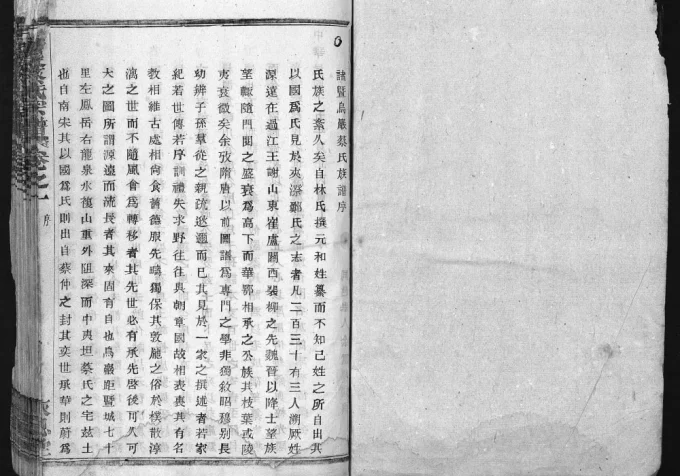 諸暨烏巖蔡氏族譜序
氏族之紊久矣自林氏撰元和姓纂而不知己姓之所自出其
以國為氏見於夾漈鄭氏之志者凡二百三十有三人溯厥姓
源遠在過江王謝山東崔盧關西裴柳之先魏晉以降士望族
望輒隨門閥之盛衰為高下而華鄂相承之公族其枝葉或陵
夷衰微矣余攷隋唐以前圖譜為專門之學非獨敘昭穆别長
幼辨子孫羣從之親疏逖邇而已其見於一家之撰述者若家
紀若世傳若序訓禮失求野往往與朝章國故相表裏其有名
教相維古處相尚食舊德服先疇獨保其敦龐之俗於樸散淳
漓之世而不隨風會為轉移者其先世必有承先啓後可久可
大之圖所謂源遠而流長者其來固有自也烏巖距暨城七十
里左鳳岳右龍泉水復山重外阻深而中夷坦蔡氏之宅兹土
也自南宋其以國為氏則出自蔡仲之封其奕世承華則蔚為
序